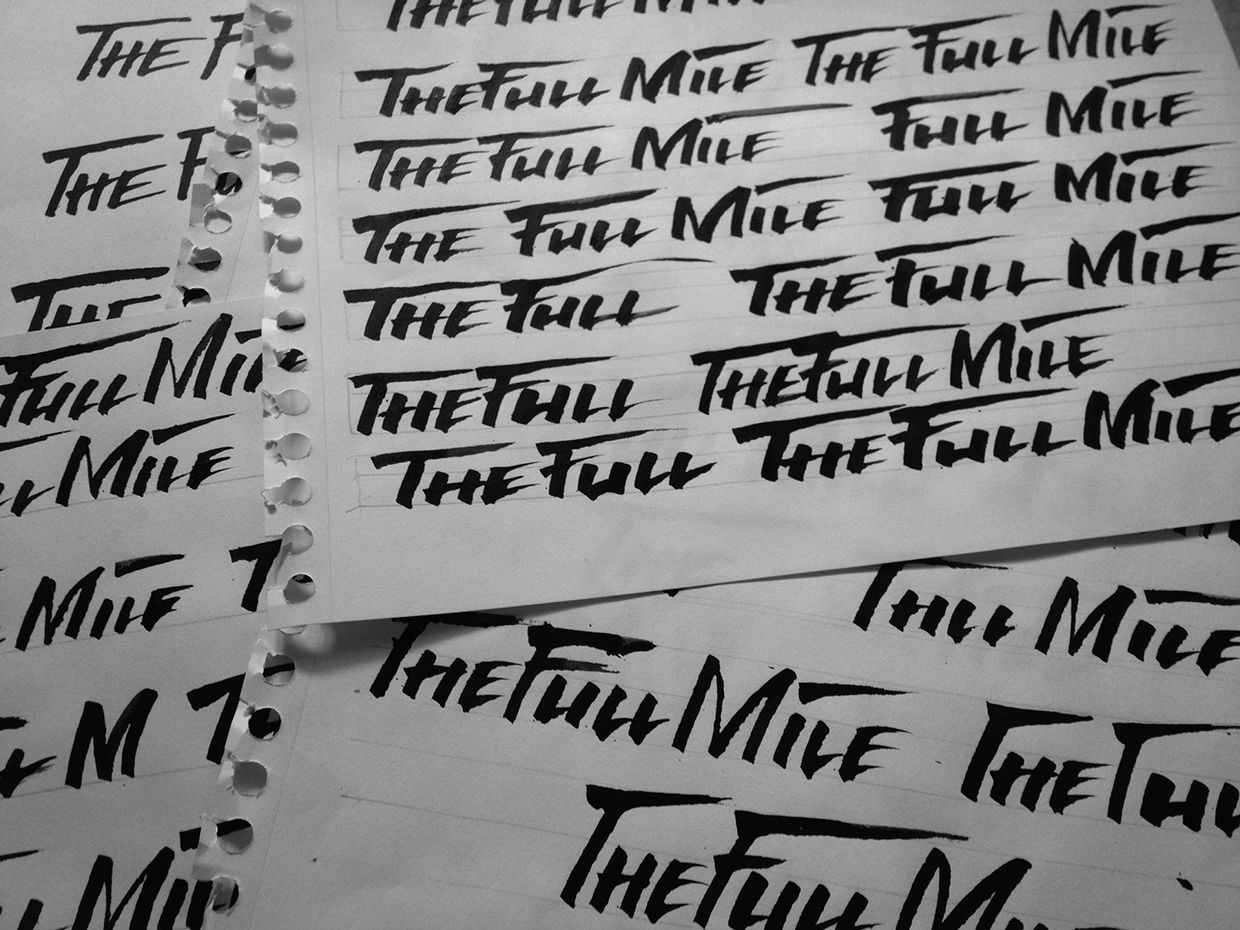 THE FULL MILE
THE FULL MILE THE FULL MILE
THE FULL MILE FULL MILE
THE FULL MILE FULL MILE
THE FULL THE FULL MILE
THE FULL THE FULL MILE
THE FULL THE FULL MILE
THE F
THE FU
THE
FULL MI
LL MILE
MILE T
LL M T
MIL
THLL MILE
THE FULL MILE THE TUL
THE FULL MIL